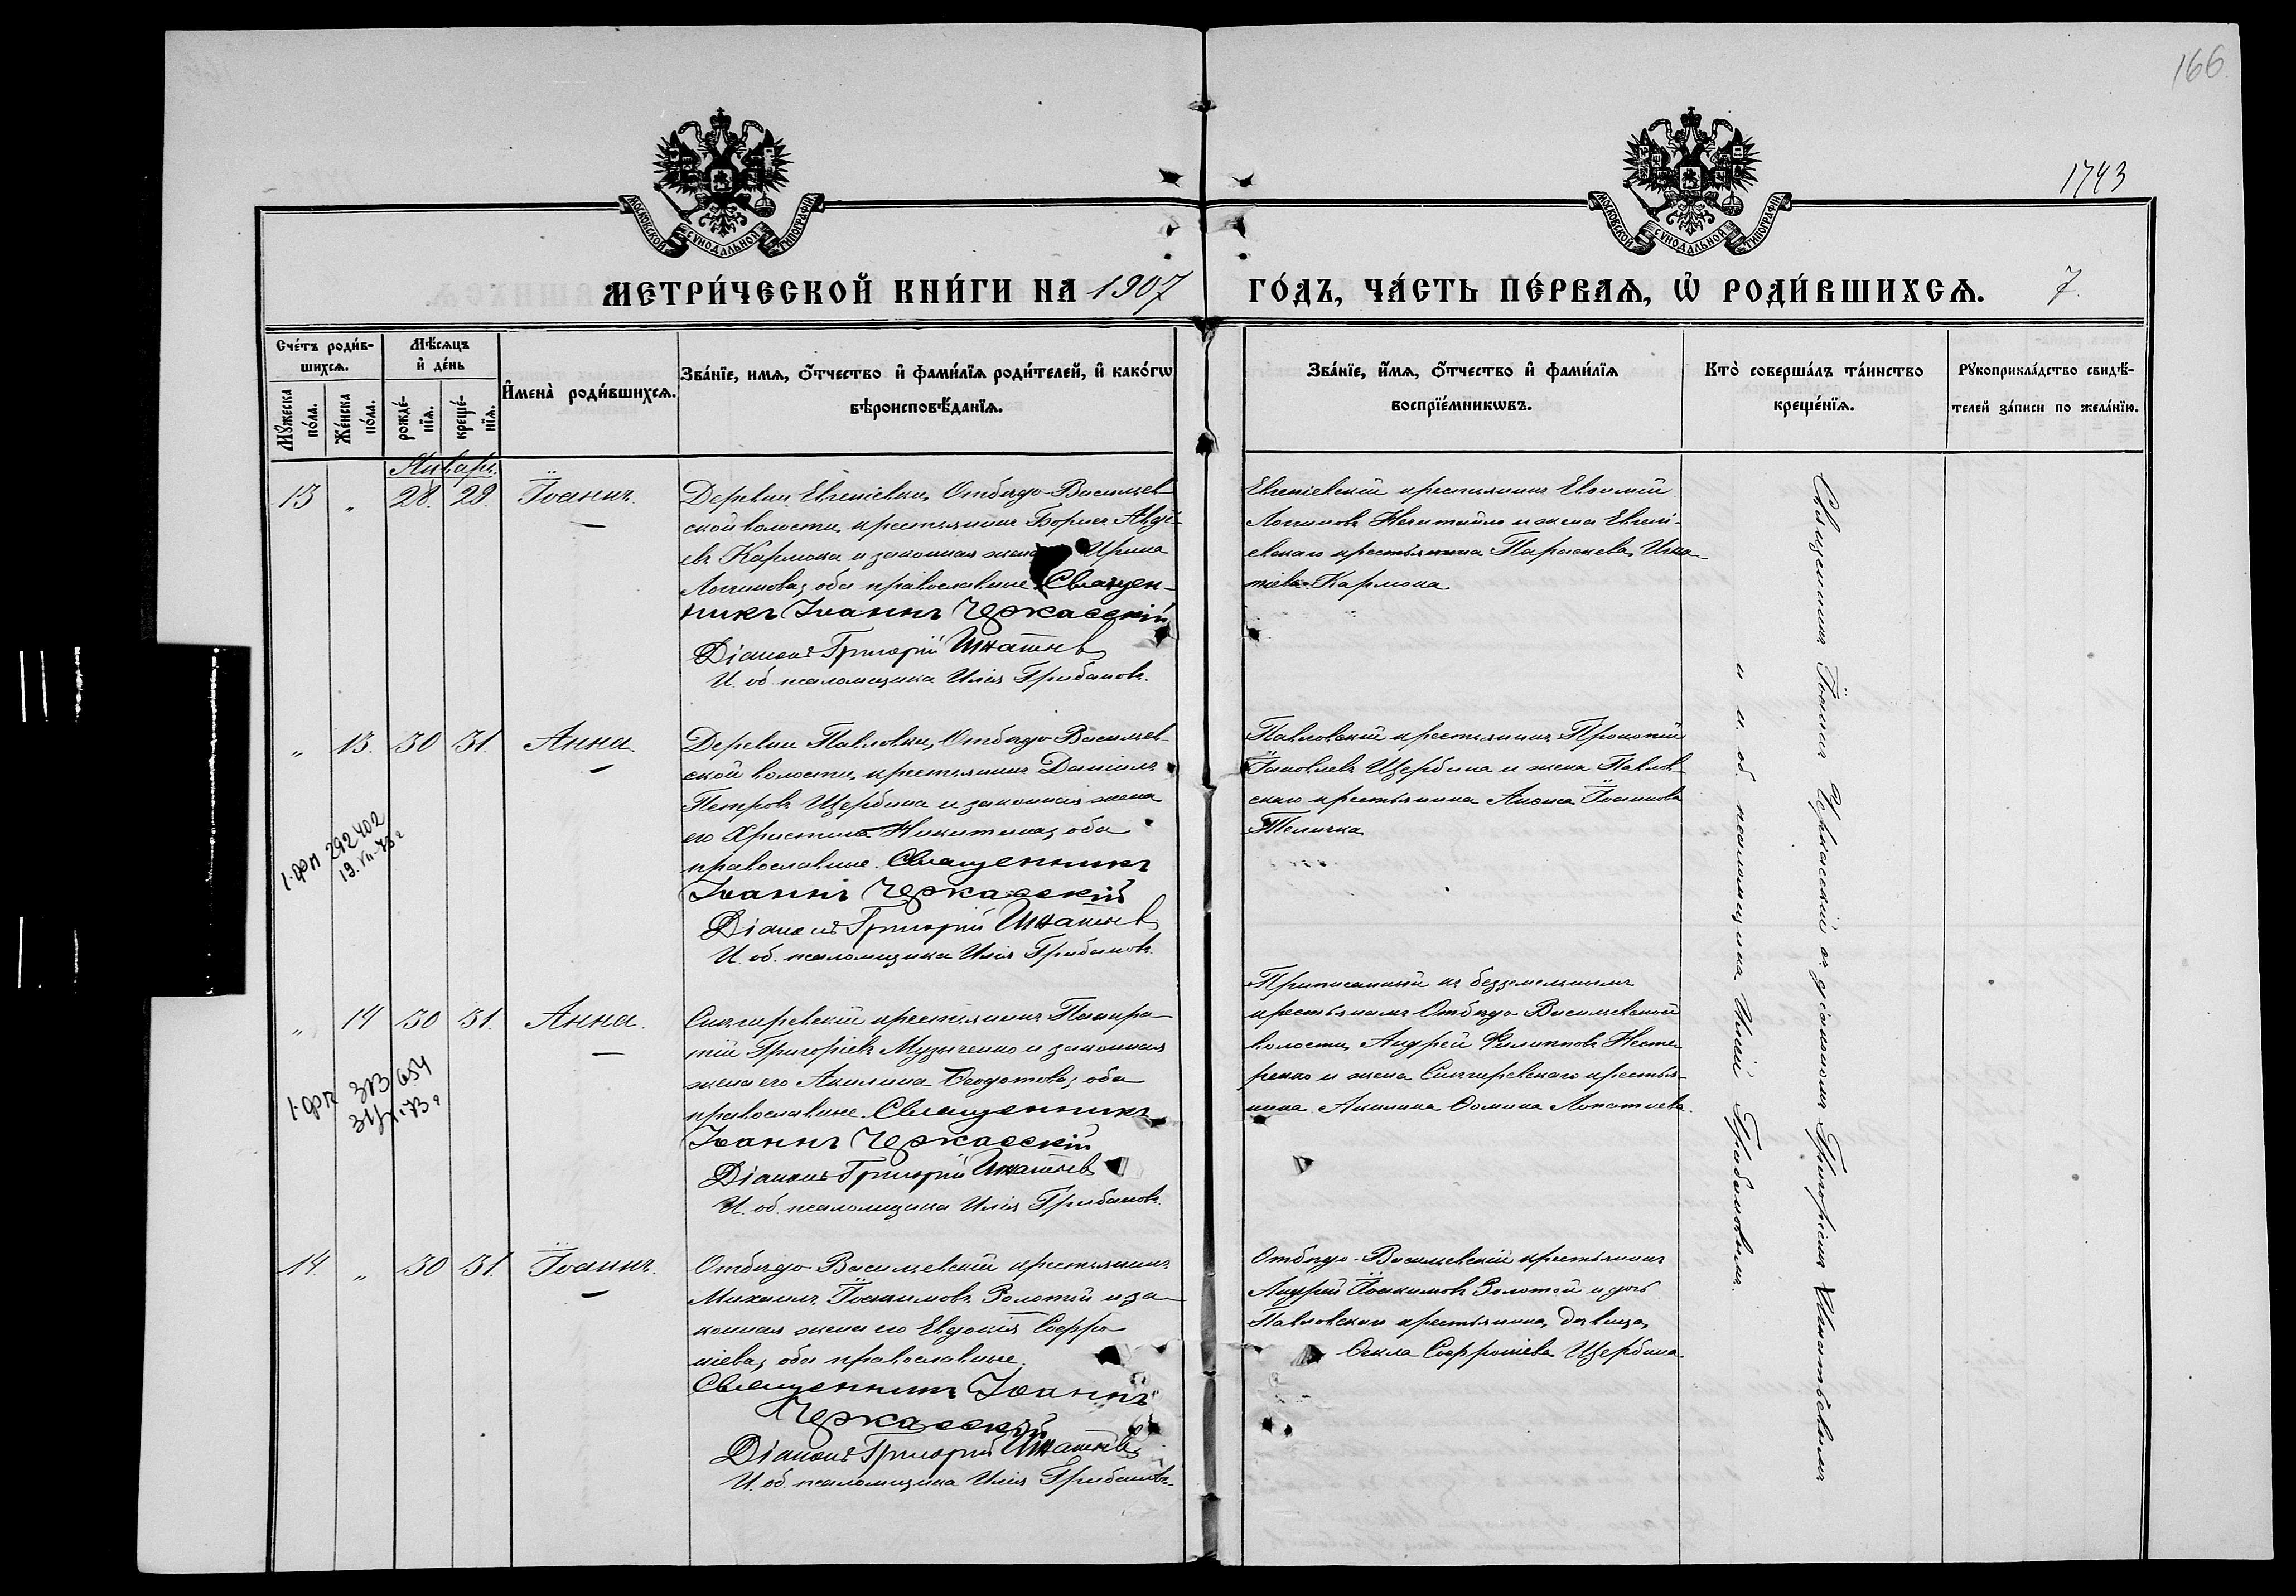 166
1743
МОСКОВСКОЙ СѴНОДАЛЬНОЙ ТИПОГРАФІИ
МОСКОВСКОЙ СѴНОДАЛЬНОЙ ТИПОГРАФІИ
МЕТРИ́ЧЕСКОЙ КНИ́ГИ НА 1907 ГО́ДЪ, ЧА́СТЬ ПЕ́РВАѦ, Ѡ҆ РОДИ́ВШИХСѦ. 7.
Сче́тъ роди́в-
шихсѧ.
Мꙋ́жеска по́ла.
Же́нска по́ла.
Мѣ́сѧцъ и҆ де́нь
рожде́-нїѧ.
креще́-нїѧ.
И҆мена̀ роди́вшихсѧ.
Зва́нїе, имѧ, о҆́тчество и҆ фами́лїѧ роди́телей, и҆ како́гѡ
вѣроисповѣ́данїѧ.
Зва́нїе, и҆́мѧ, о҆́тчество и҆ фами́лїѧ
воспрїе́мникѡвъ.
Кто̀ соверша́лъ та́инство
креще́нїѧ.
Рꙋкоприкла́дство свидѣ́-
телей за́писи по жела́нїю.
Январь.
13 „ 28. 29. Іоаннъ.
Деревни Евгеніевки, Отбѣдо-Васильев-
ской волости, крестьянинъ Борисъ Авдѣ-
евъ Кармока и законная жена Ирина
Логинова, оба православные. Священ-
никъ Іоаннъ Черкасскій
Діаконъ Григорій Игнатьев
И. об. псаломщика Илія Грибановъ.
Евгеніевскій крестьянинъ Евѳимій
Логиновъ Нечитайло и жена Евгені-
евскаго крестьянина Параскева Игна-
тіева Кармока
„ 13. 30 31. Анна.
Деревни Павловки, Отбѣдо-Васильев-
ской волости, крестьянинъ Даніилъ
Петровъ Щербина и законная жена
его Христина Никитина, оба
православные. Священникъ
Іоаннъ Черкасскій
Діаконъ Григорій Игнатьев
И. об. псаломщика Илія Грибановъ.
Павловскій крестьянинъ Прокопій
Іаковлевъ Щербина и жена Павлов-
скаго крестьянина Анона Іоаннова
Теличка
292402
19.VII-73 г
„ 14 30 31. Анна.
Снигиревскій крестьянинъ Панкра-
тій Григоріевъ Музыченко и законная
жена его Акилина Ѳеодотова, оба
православные. Священникъ
Іоаннъ Черкасскій
Діаконъ Григорій Игнатьев
И. об. псаломщика Илія Грибановъ.
Приписанный къ безземельнымъ
крестьянамъ Отбѣдо-Васильевской
волости, Андрей Филипповъ Несте-
ренко и жена Снигиревскаго крестья-
нина Акилина Ѳомина Лопатнева.
313654
73 г
14. „ 30 31. Іоаннъ.
Отбѣдо-Васильевскій крестьянинъ
Михаилъ Іоакимовъ Золотой и за-
конная жена его Евдокія Софро-
ніева, оба православные.
Священникъ Іоаннъ
Черкасскій
Діаконъ Григорій Игнатьев
И. об. псаломщика Илія Грибановъ.
Отбѣдо-Васильевскій крестьянинъ
Андрей Іоакимовъ Золотой и дочь
Павловскаго крестьянина, дѣвица,
Ѳекла Софроніева Щербина.
Священникъ Іоаннъ Черкасскій съ діакономъ Григоріемъ Игнатьевымъ
и и. об. псаломщика Иліей Грибановымъ.